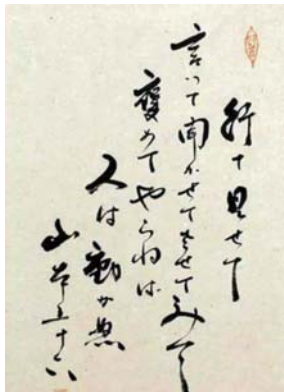 行て見せて
言って聞かせてさせてみて
褒めてやらねば
人は動か須
山本五十六